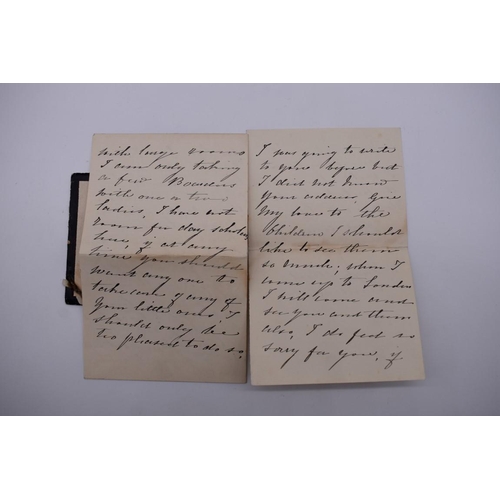 with large rooms
I am only taking
a few Boarders
with one or two
ladies, I have not
room for day scholars
here, if at any
time you should
want any one to
take care of any of
your little ones I
should only be
too pleased to do so,
I was going to write
to you before but
I did not know
your address, give
my love to the
Children I should
like to see them
so much; when I
come up to London
I will come and
see you and them
also, I do feel so
sorry for you, if